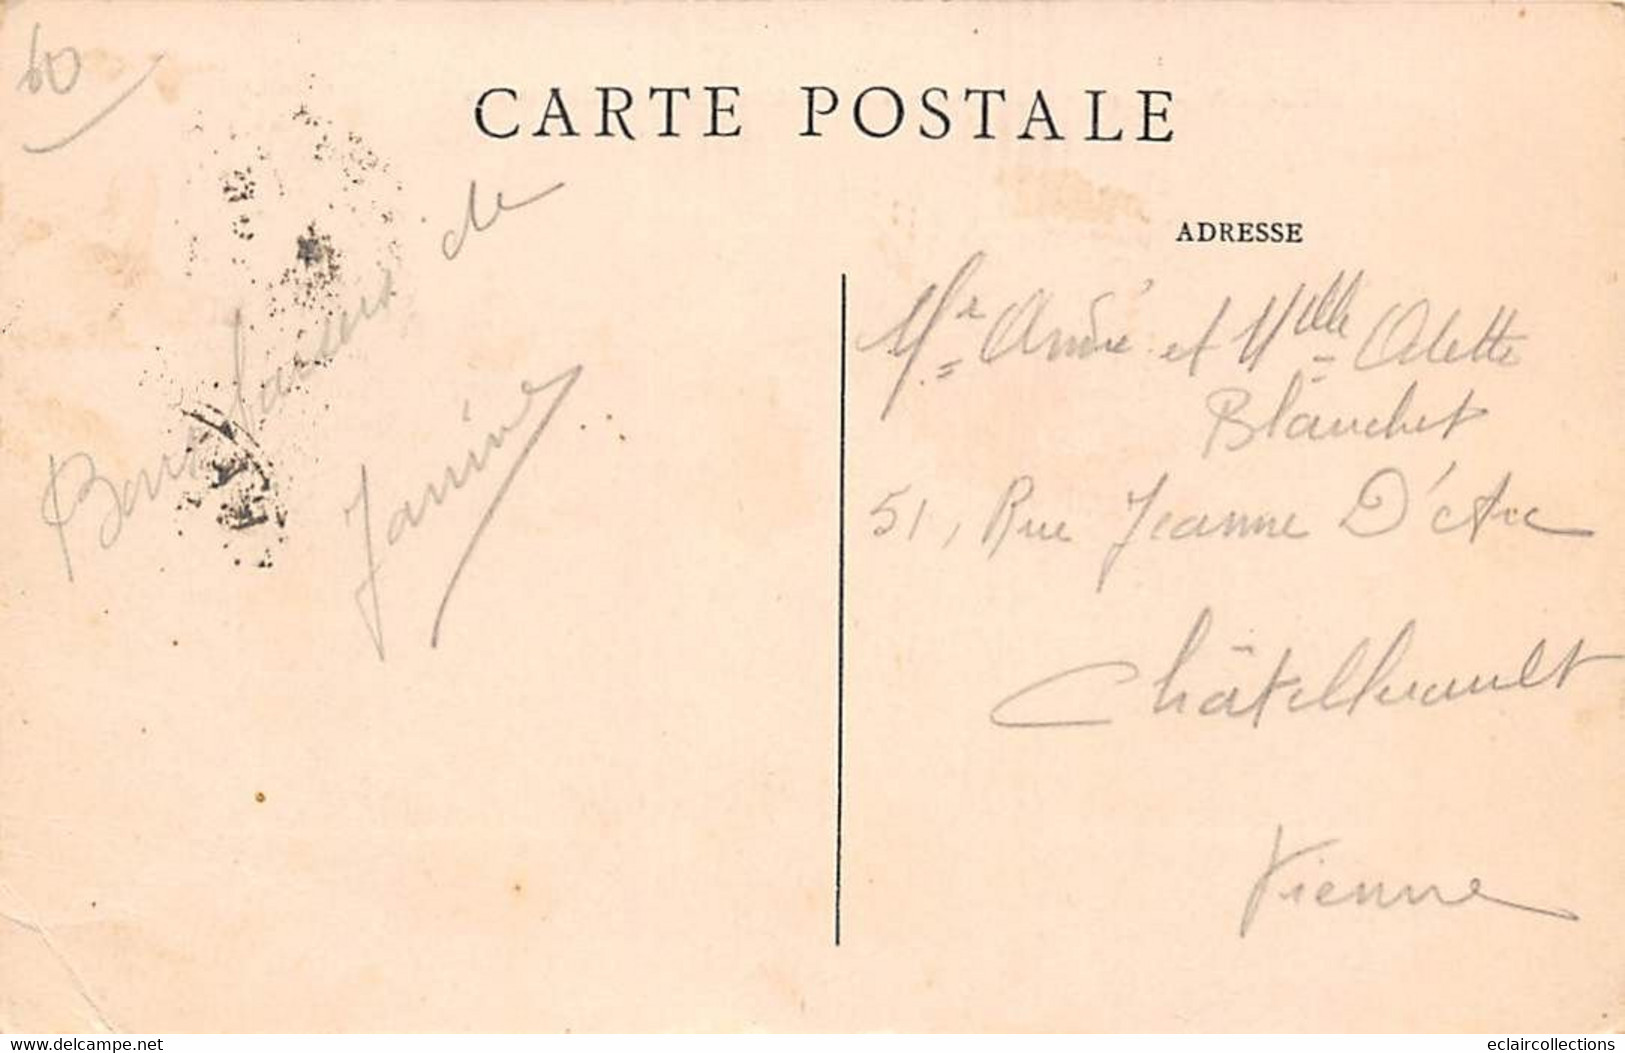 60
CARTE POSTALE
Bons baisers de
Janine
ADRESSE
Mr André et Mlle Odette
Blanchet
51, Rue Jeanne D'Arc
Châtellerault
Vienne
www.delcampe.net
eclaircollections